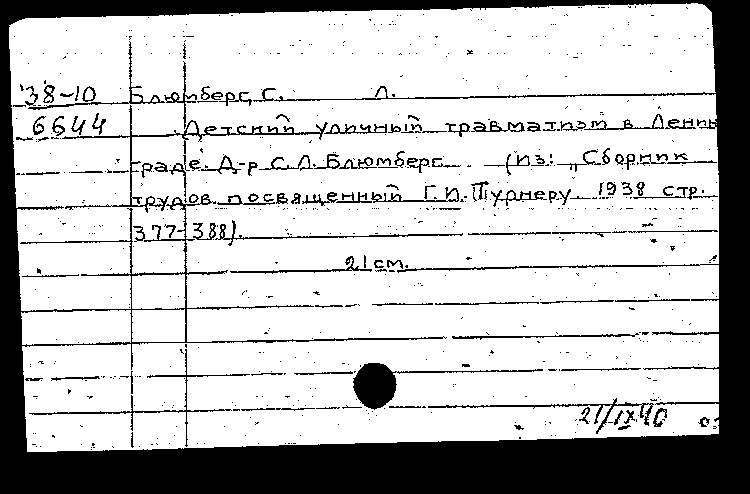 38-10 Блюмберг, С. Л.
6644 Детский уличный травматизм в Ленин
граде. Д-р С.Л. Блюмберг. (Из: „Сборник
трудов посвященный Г.И. Турнеру. 1938 стр.
377-388).
21 см.
21/IX 40